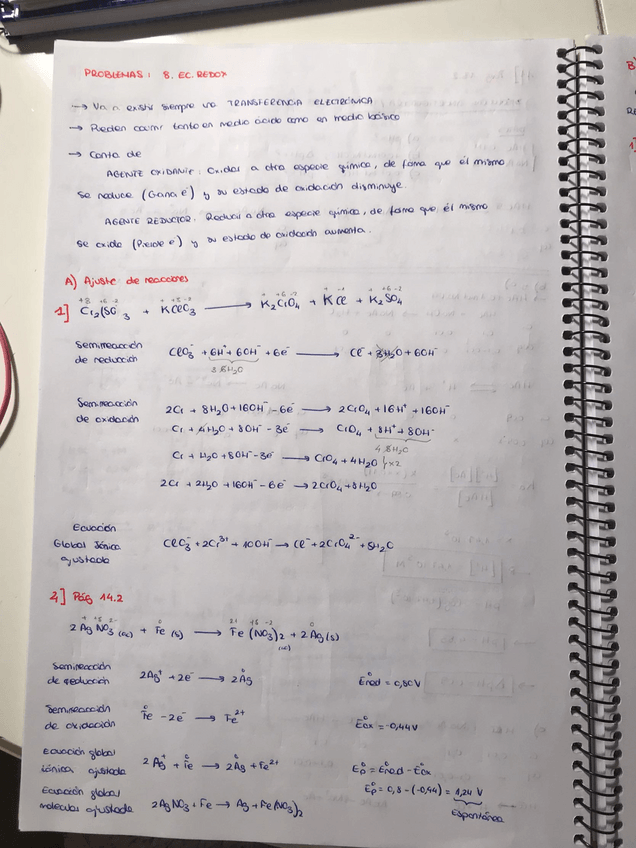 PROBLEMAS: 8. EC. REDOX
→ Va a existir siempre una TRANSFERENCIA ELECTRÓNICA
→ Pueden ocurrir tanto en medio ácido como en medio básico
→ Consta de
AGENTE OXIDANTE: Oxidar a otra especie química, de forma que él mismo
se reduce (Gana e⁻) y su estado de oxidación disminuye.
AGENTE REDUCTOR: Reducir a otra especie química, de forma que él mismo
se oxida (Pierde e⁻) y su estado de oxidación aumenta.
A) Ajuste de reacciones
1] Cr₂(SO 3 + KClO₃ → K₂CrO₄ + KCl + K₂SO₄
Semirreacción de reducción
ClO₃⁻ + 6H⁺ + 6OH⁻ + 6e⁻ → Cl⁻ + 3H₂O + 6OH⁻
3 6H₂O
Semirreacción de oxidación
2Cr + 8H₂O + 16OH⁻ - 6e⁻ → 2CrO₄ + 16H⁺ + 16OH⁻
Cr + 4H₂O + 8OH⁻ - 3e⁻ → CrO₄ + 8H⁺ + 8OH⁻
4 8H₂O
Cr + H₂O + 8OH⁻ - 3e⁻ → CrO₄ + 4H₂O } x2
2Cr + 2H₂O + 16OH⁻ - 6e⁻ → 2CrO₄ + 8H₂O
Ecuación Global Iónica ajustada
ClO₃⁻ + 2Cr³⁺ + 10OH⁻ → Cl⁻ + 2CrO₄²⁻ + 5H₂O
2] Pág 14.2
2AgNO₃ (ac) + Fe (s) → Fe(NO₃)₂ (ac) + 2Ag (s)
Semirreacción de reducción
2Ag⁺ + 2e⁻ → 2Ag⁰
E⁰red = 0,80V
Semirreacción de oxidación
Fe⁰ - 2e⁻ → Fe²⁺
E⁰ox = -0,44V
Ecuación global iónica ajustada
2Ag⁺ + Fe⁰ → 2Ag⁰ + Fe²⁺
E⁰p = E⁰red - E⁰ox
Ecuación global molecular ajustada
2AgNO₃ + Fe → Ag + Fe(NO₃)₂
E⁰p = 0,8 - (-0,44) = 1,24 V
Espontánea